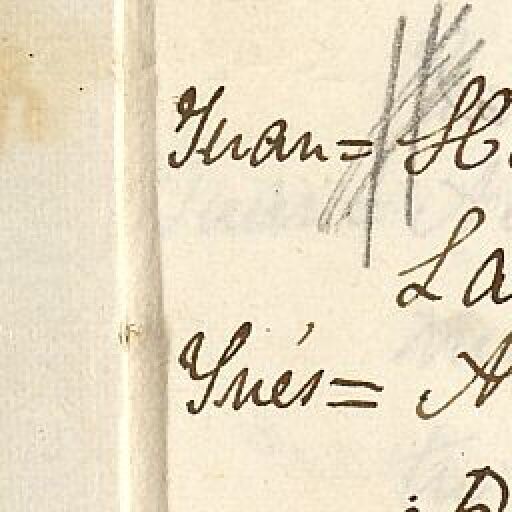 Juan= H.
La
Ynés= A
¡D